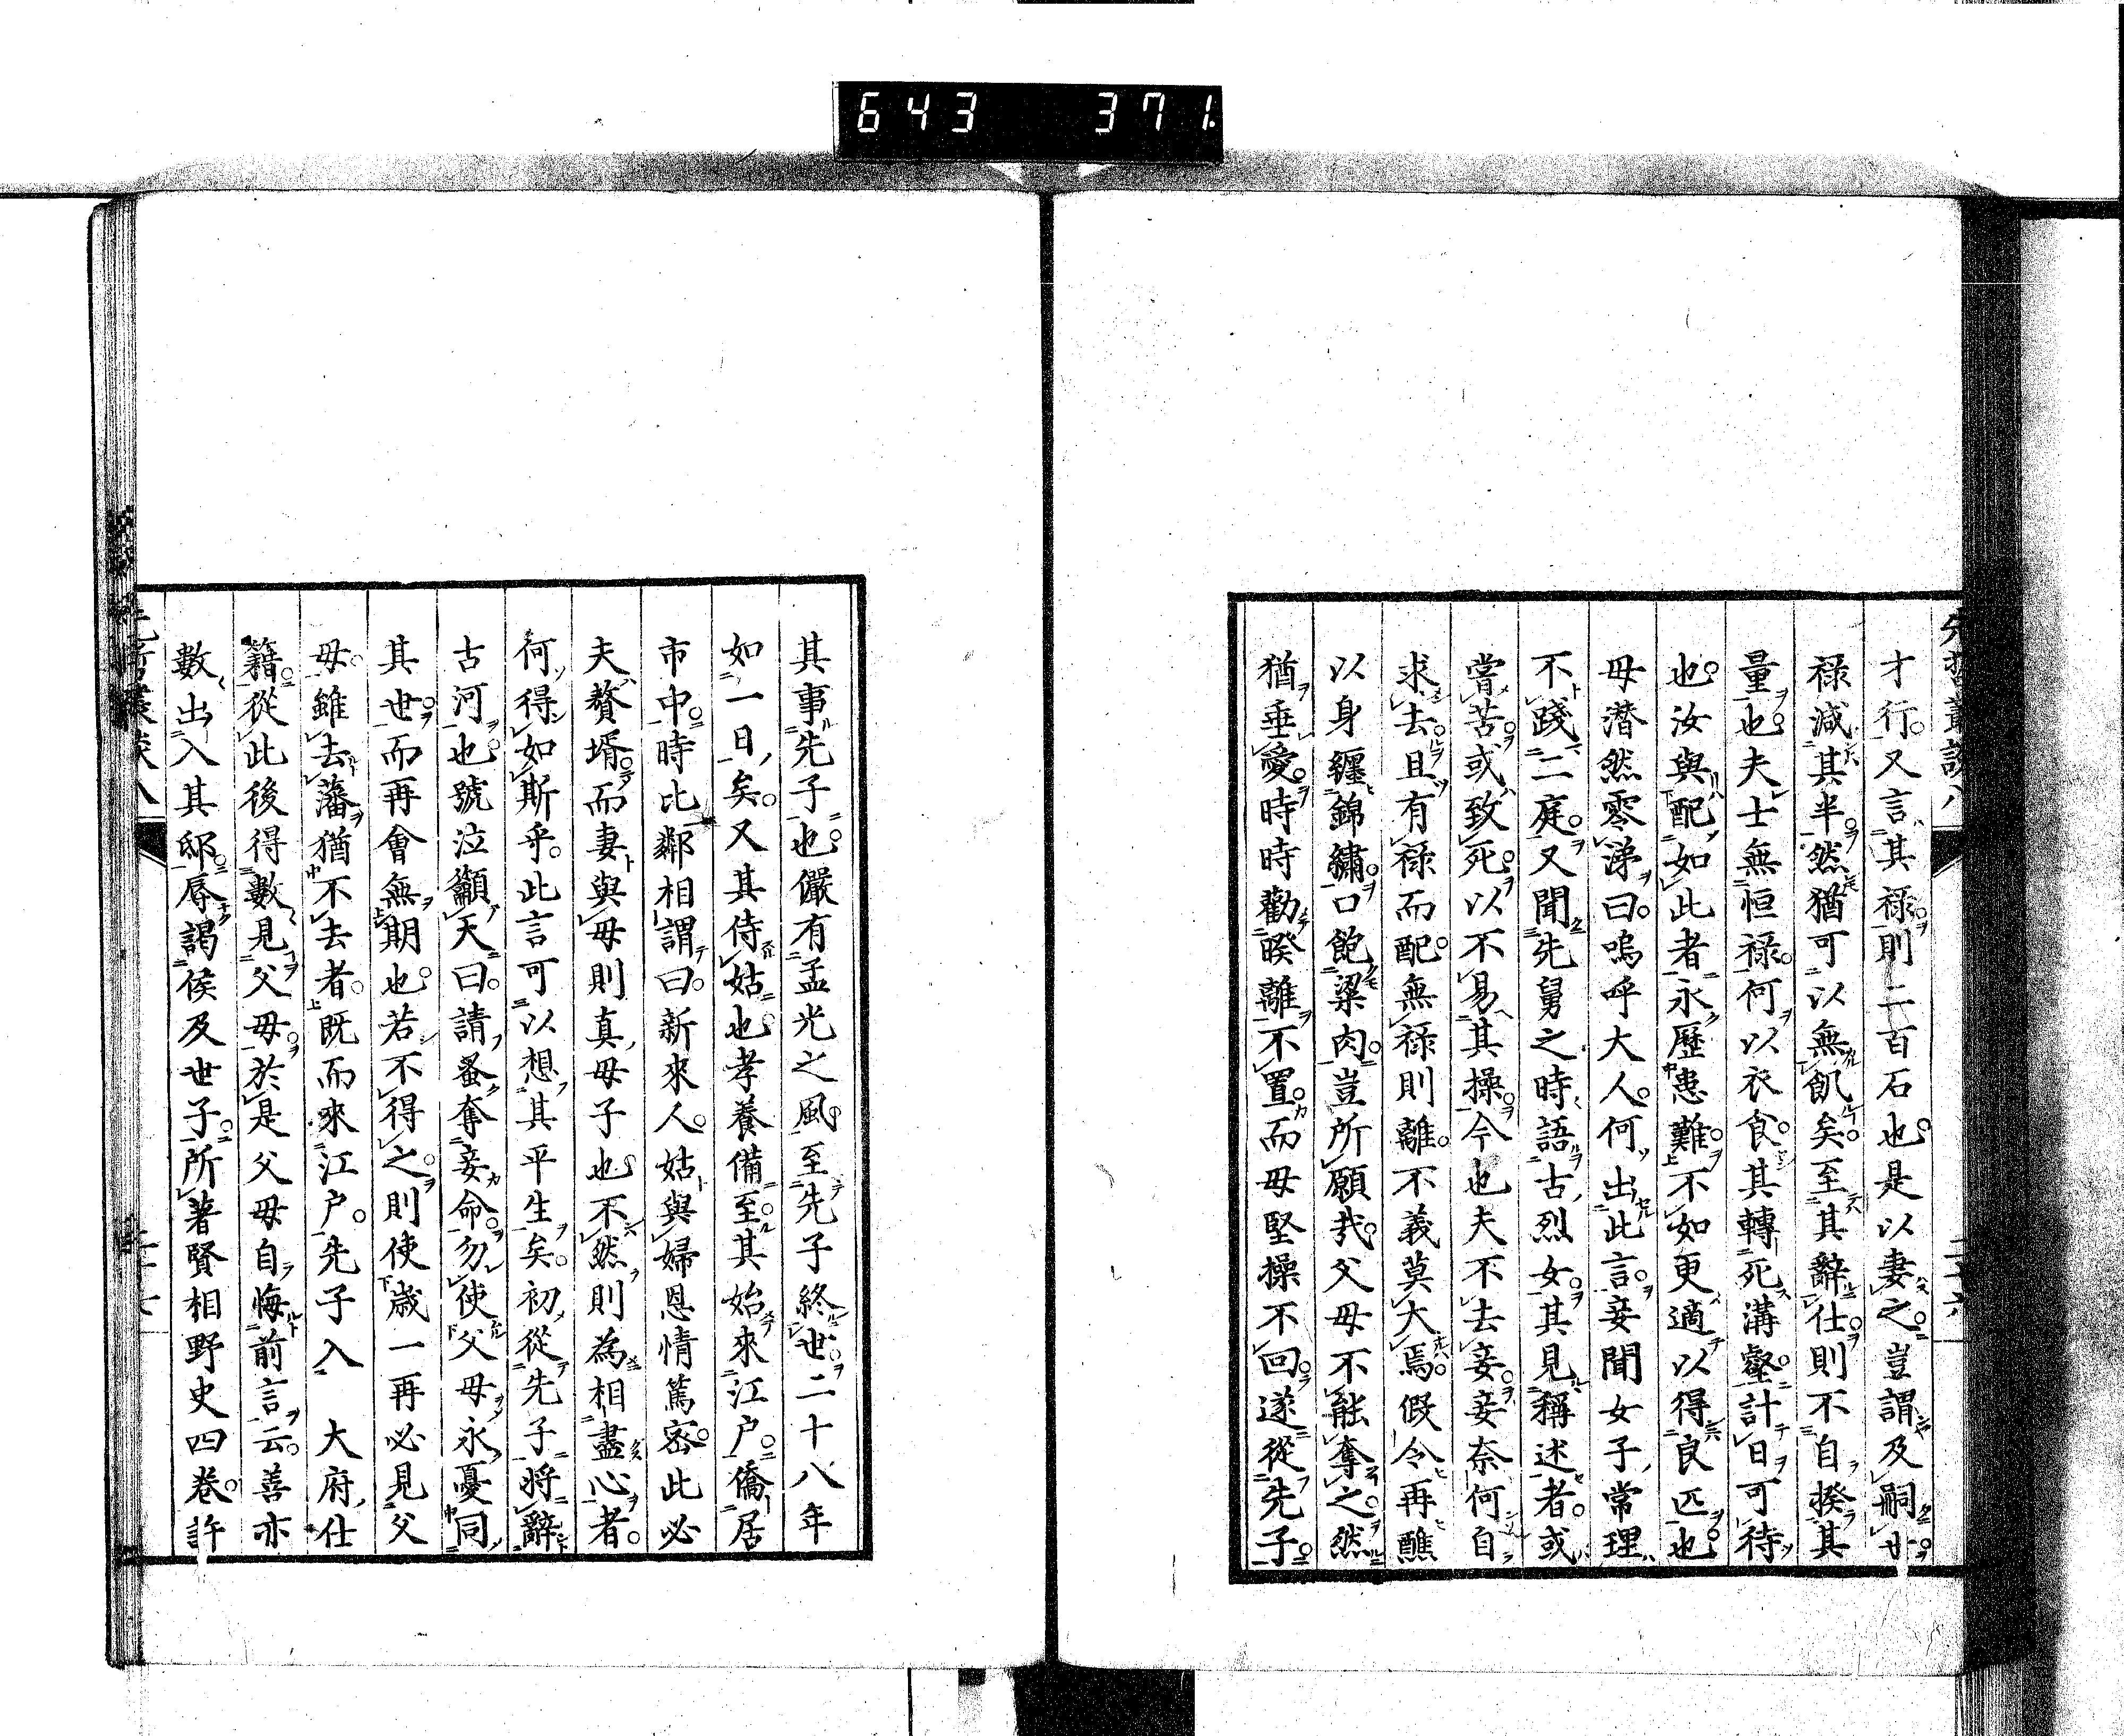 643 371
才行又言其祿則二百石也是以妻之豈謂及嗣廿
祿減其半然猶可以無飢矣至其辭仕則不自揆其
量也夫士無恒祿何以衣食其轉死溝壑計日可待
也汝與配如此者永歷患難不如更適以得良匹也
母潛然零涕曰嗚呼大人何出此言妾聞女子常理
不踐二庭又聞先舅之時語古烈女其見稱述者或
嘗苦或致死以不易其操今也夫不去妾妾奈何自
求去且有祿而配無祿則離不義莫大焉假令再醮
以身纏錦繡口飽粱肉豈所願哉父母不能奪之然
猶垂愛時時勸暌離不置而母堅操不回遂從先子
其事先子也儼有孟光之風至先子終世二十八年
如一日矣又其侍姑也孝養備至其始來江戶僑居
市中時比鄰相謂曰新來人姑與婦恩情篤密此必
夫贅壻而妻與母則真母子也不然則為相盡心者
何得如斯乎此言可以想其平生矣初從先子將辭
古河也號泣籲天曰請蚤奪妾命勿使父母永憂同
其世而再會無期也若不得之則使歲一再必見父
母雖去藩猶不去者既而來江戶先子入 大府仕
籍從此後得數見父母於是父母自悔前言云善亦
數出入其邸辱謁侯及世子所著賢相野史四卷許